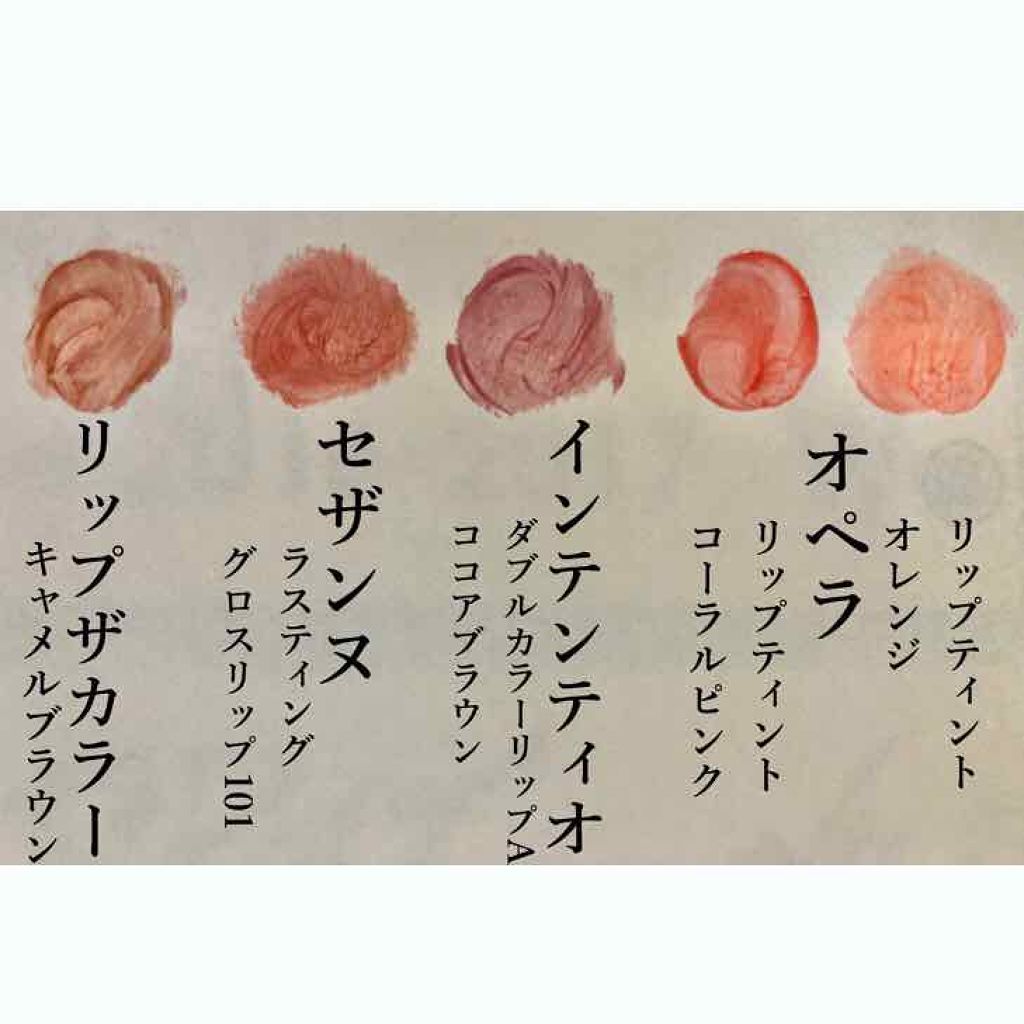 リップティント
オレンジ
オペラ
リップティント
コーラルピンク
インテンティオ
ダブルカラーリップA
ココアブラウン
セザンヌ
ラスティング
グロスリップ101
リップザカラー
キャメルブラウン